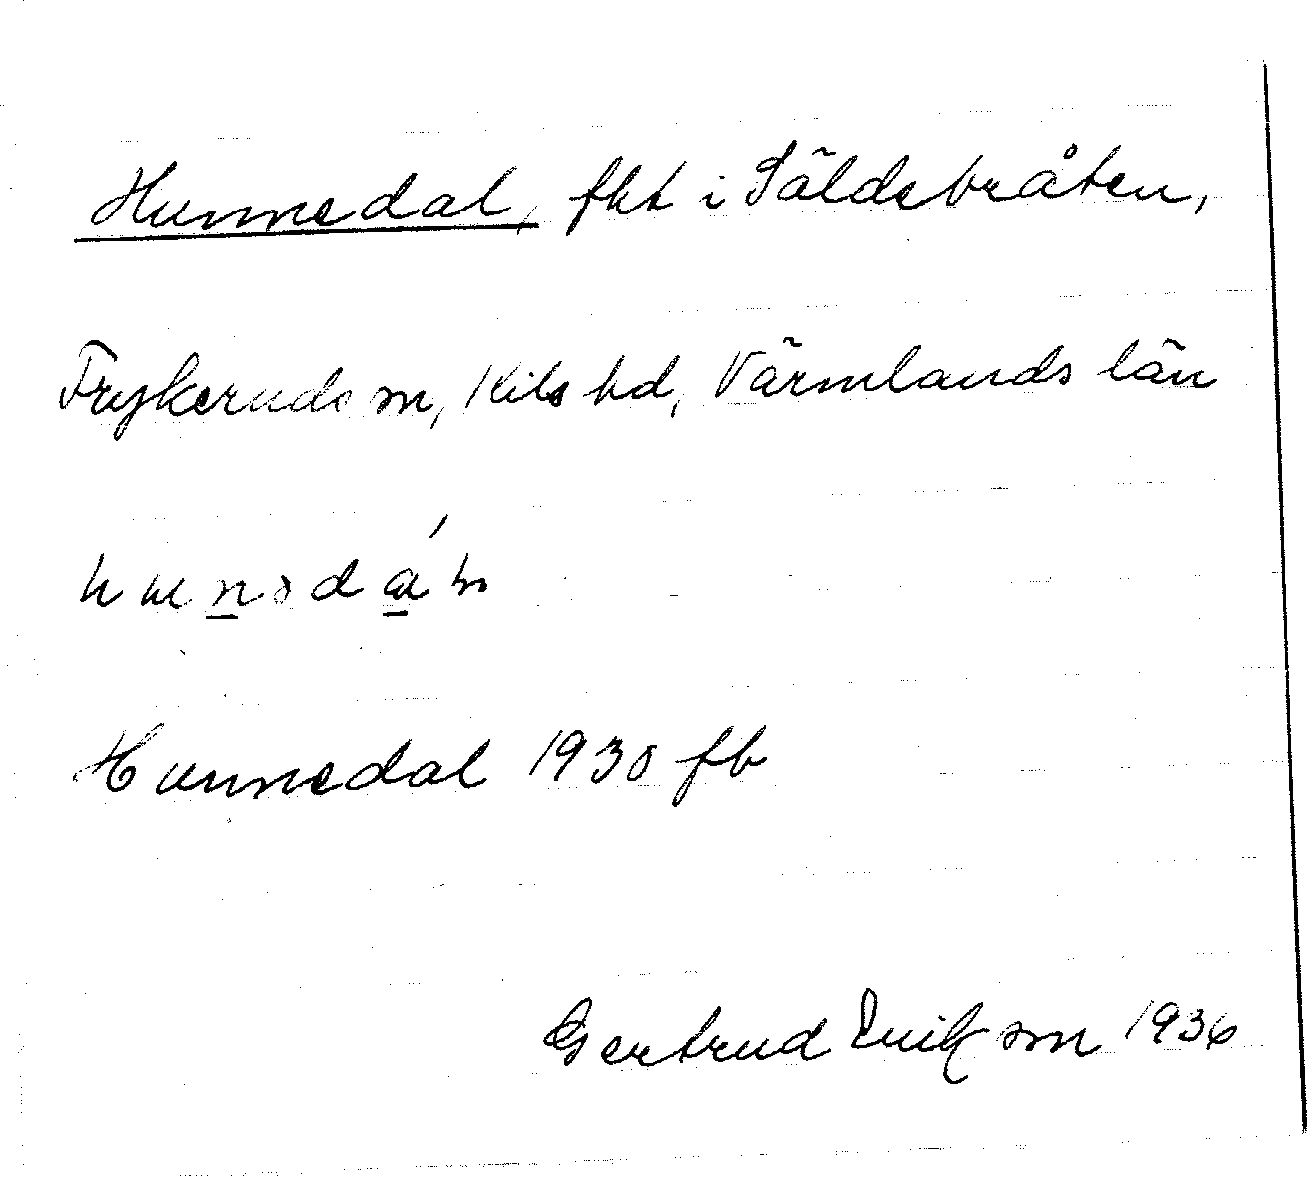 Hunnedal, fkt i Säldebråten,
Frykeruds sn, Kils hd, Värmlands län
Hunnedal 1930 fb
Gertrud Erikson 1936